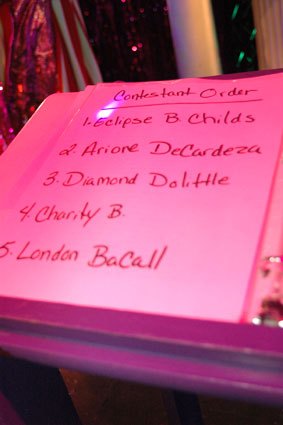 Contestant Order
1. Eclipse B Childs
2. Arione DeCardeza
3. Diamond Dolittle
4. Charity B.
5. London BaCall